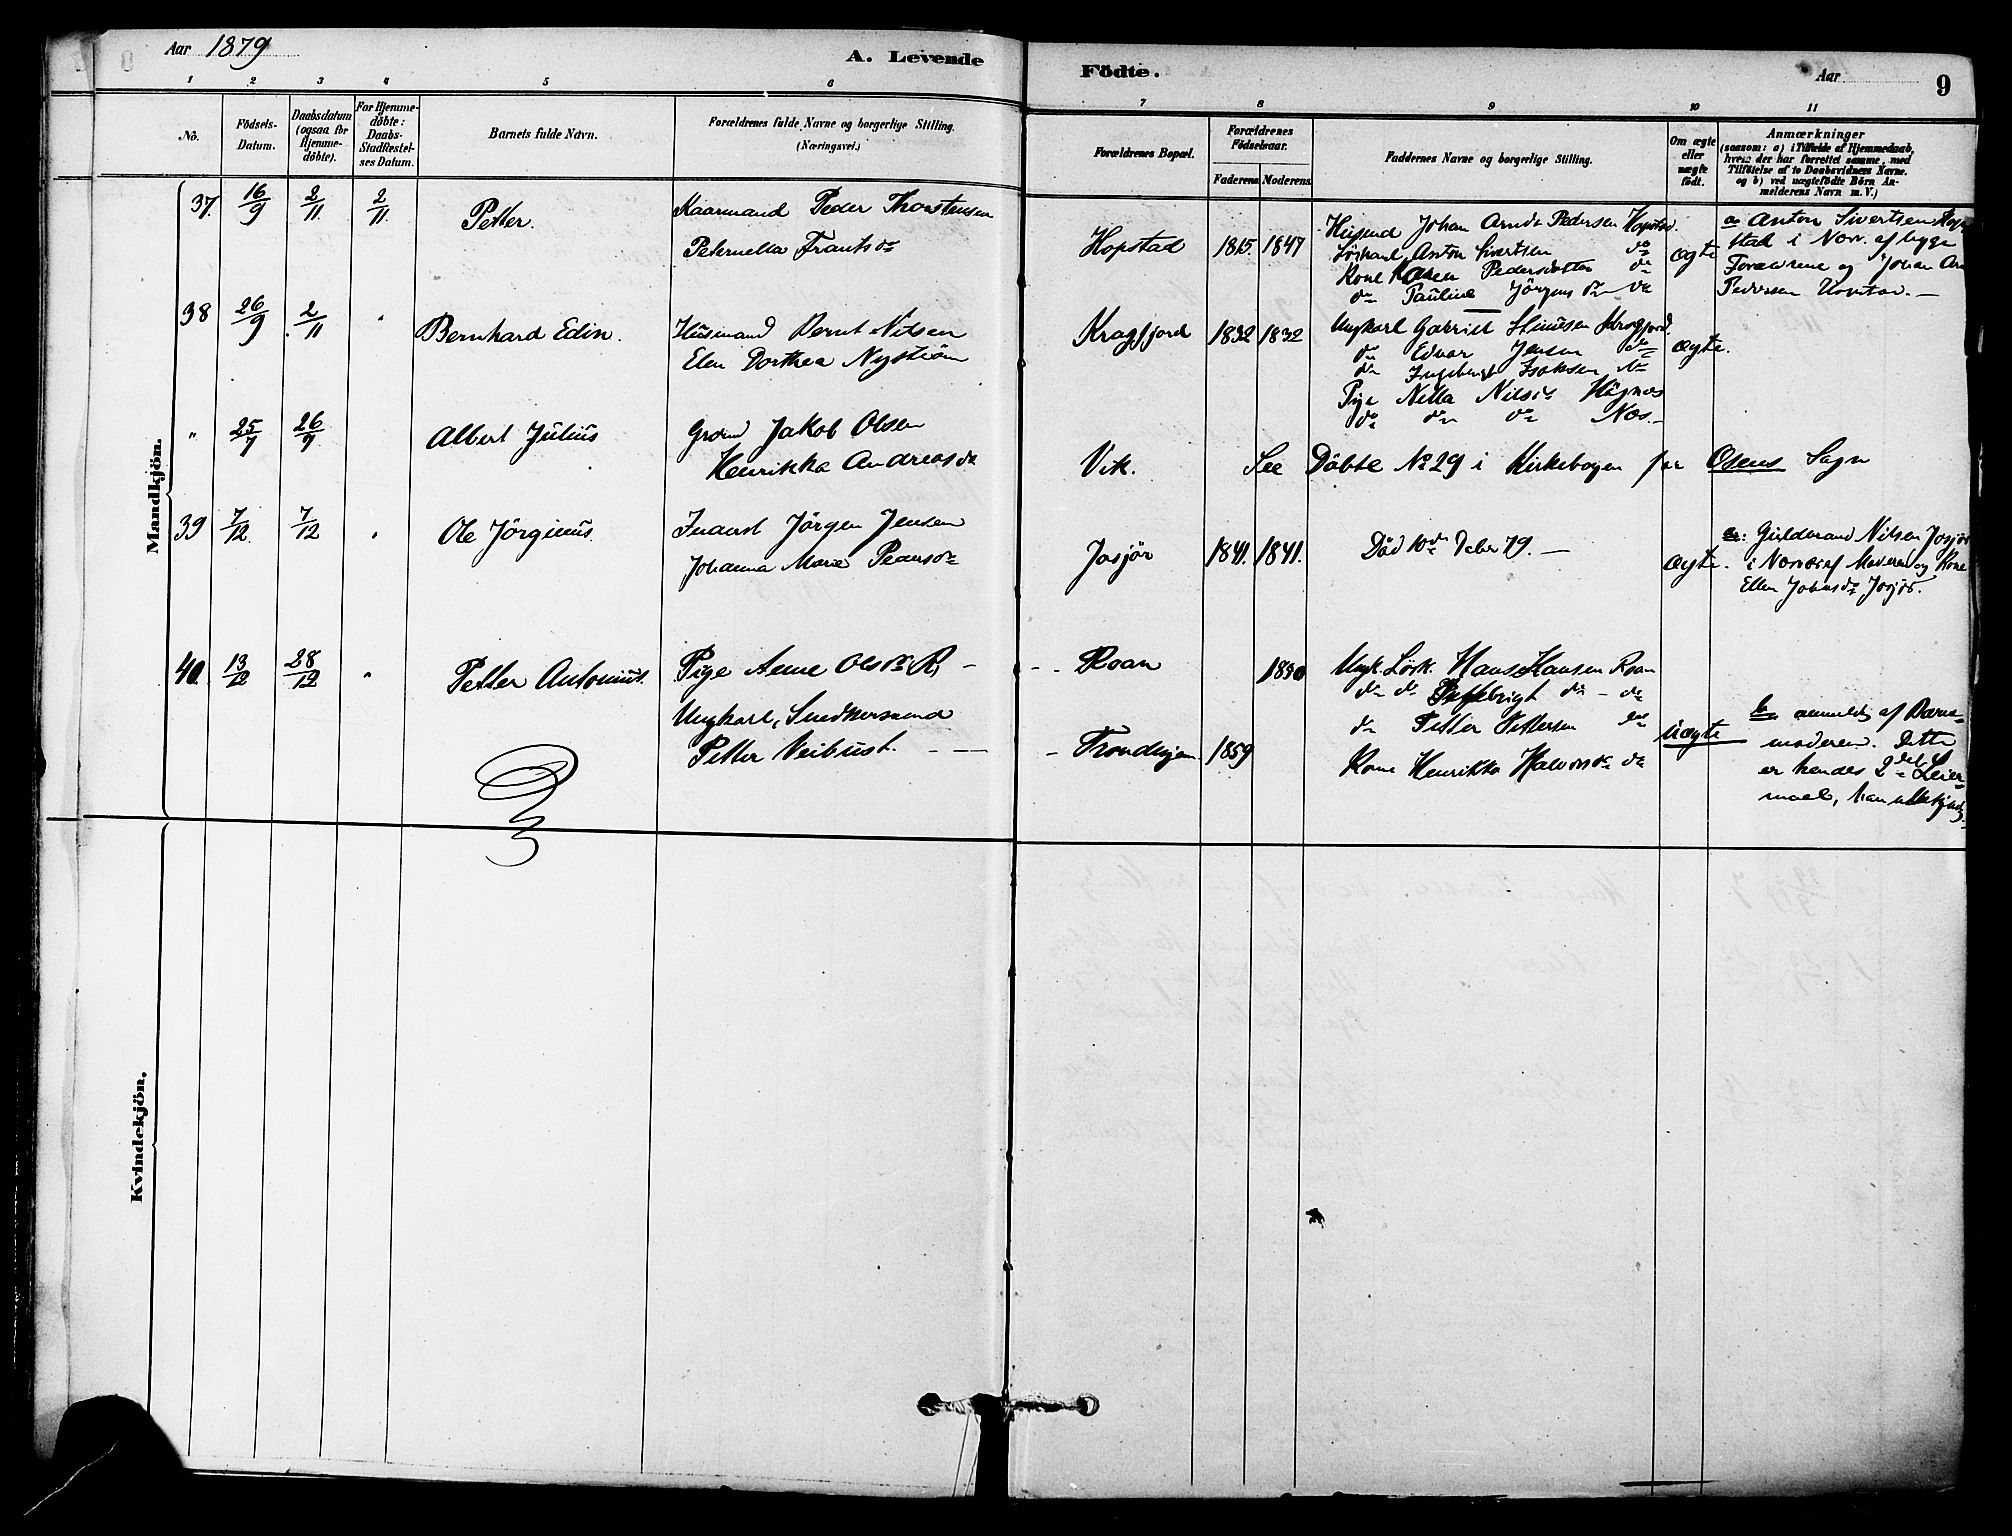 Aar 1879
A. Levende Födte.
Aar
9
1 2 3 4 5 6 7 8 9 10 11
No.
Födsels-Datum.
Daabsdatum (ogsaa for Hjemme-döbte).
For Hjemme-döbte: Daabs-Stadfæstelses Datum.
Barnets fulde Navn.
Forældrenes fulde Navne og borgerlige Stilling. (Næringsvei.)
Forældrenes Bopæl.
Forældrenes Födselsaar.
Faderens. Moderens.
Faddernes Navne og borgerlige Stilling.
Om ægte eller uægte födt.
Anmærkninger
(saasom: a) i Tilfælde af Hjemmedaab, hvem der har forrettet samme, med Tilföielse af to Daabsvidners Navne. og b) ved uægtefödte Börn Anmelderens Navn m. V.)
Mandkjön.
37. 16/9 2/11 2/11 Petter.
Kaarmand Peder Thorstensen
Peternella Frants dr
Hopstad 1815. 1847
Husmd Johan Arndt Pedersen Hopstad.
Löskarl Anton Sivertsen do
Kone Karen Pedersdatter do
do Pauline Jörgens dr do
ægte
a Anton Sivertsen Hop
stad i Nærv. af begge
Forældrene og Johan Arn
Pedersen Hopstad. —
38 26/9 2/11 " Bernhard Edin.
Husmand Bernt Nilsen
Elen Dorthea Nyström
Kragfjord 1832 1832
Ungkarl Gabriel Kragfjord.
do Edvar Jensen do
do Ingebrigt Isaksen do
Pige Nella Nils dr Hägnæs
do do do Næs. —
ægte.
" 25/7 26/9 Albert Julius
Grdmd Jakob Olsen
Henrikka Andreas dr
Vik.
See Döbte No 29 i Kirkebogen for Osens Sogn
39 7/12 7/12 " Ole Jörginus.
Inderst Jörgen Jensen
Johanna Marie Peders dr
Josjör 1841. 1841.
Död 10de Decbr 79. —
ægte.
a: Nilsen Josjör
i Nærvær af Moderen og Kone
Ellen Johns dr Josjör.
40. 13/12 28/12 " Petter Antonius.
Pige Anne Ols dr R, —
Ungkarl, Snedkersvend
Petter Veibust. — —
— Roan 1830
— Trondhjem 1859
Ungk. Lösk. Hans Hansen Roan
do do Ingebrigt do - do
do Petter Pettersen do
Kone Henrikka Halvors dr do
Uægte
b. anmeldt af Barne-
moderen. Dette
er hendes 2det Leier-
maal,
Kvindekjön.